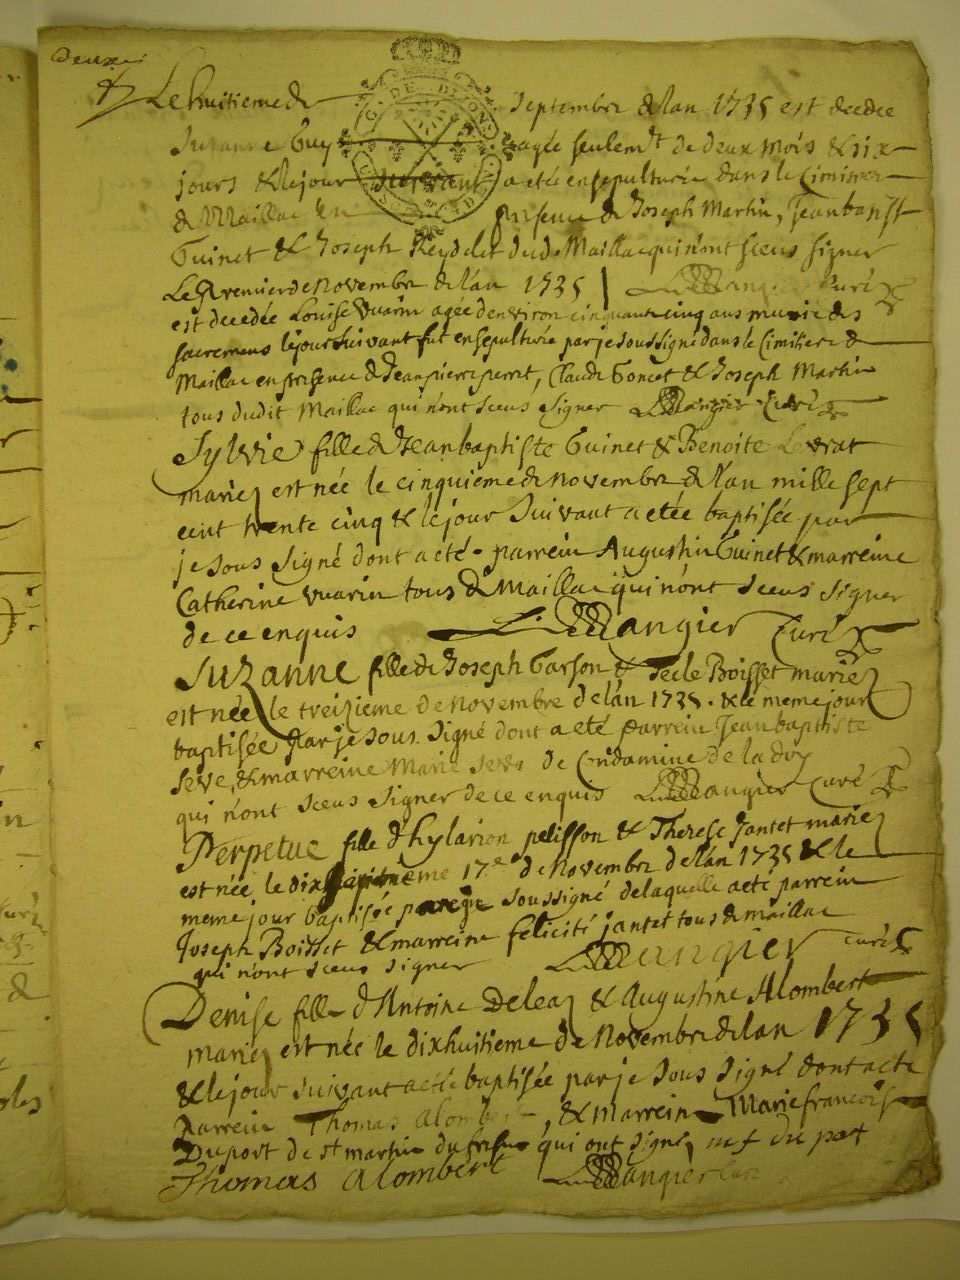 deux
Le huitieme de septembre de lan 1735 est decedee
Suzanne Guy agée seulemt de deux mois & six
jours & le jour suivant a eté ensepulturée dans le Cimitiere
de Maillac en presence de Joseph Martin, Jean baptiste
Guinet & Joseph Reydelet dud. Maillac qui n'ont sceus signer
Le premier de Novembre de lan 1735 Mangier Curé
est decedée Louise vuarin agée denviron cinquante cinq ans munie des
sacremens le jour suivant fut ensepulturée par je soussigné dans le Cimitiere de
Maillac en presence de Jean pierre perret, Claude Goncet & Joseph Martin
tous dudit Maillac qui n'ont sceus signer Mangier Curé
Sylvie fille de Jean baptiste Guinet & Benoite Levrat
mariez est née le cinquiéme de novembre de lan mille sept
cent trente cinq & le jour suivant a etée baptisée par
je sous signé dont a eté parrein Augustin Guinet & marreine
Catherine vuarin tous de Maillac qui n'ont sceus signer
de ce enquis Mangier Curé
Suzanne fille de Joseph Garson & Tecle Boisset mariez
est née le treizieme de Novembre de lan 1735 . & le meme jour
baptisée par je sous signé dont a eté parrein Jean baptiste
seve, & marreine Marie seve de Condamine de la doy
qui n'ont sceus signer de ce enquis Mangier Curé
Perpetue fille d'hylarion pelisson & Therese Jantet mariez
est née le dix 17e de Novembre de lan 1735 & le
meme jour baptisée par je soussigné de laquelle a eté parrein
Joseph Boisset & marreine felicité jantet tous de maillac
qui n'ont sceus signer Mangier curé
Denise fille d'Antoine Deleaz & Augustine Alombert
mariez est née le dixhuitieme de Novembre de lan 1735
& le jour suivant a eté baptisée par je sous signé dont a eté
parrein Thomas alombert, & marreine Marie francoise
Duport de st martin du fresne qui ont signé m f du port
Thomas alombert Mangier Cur